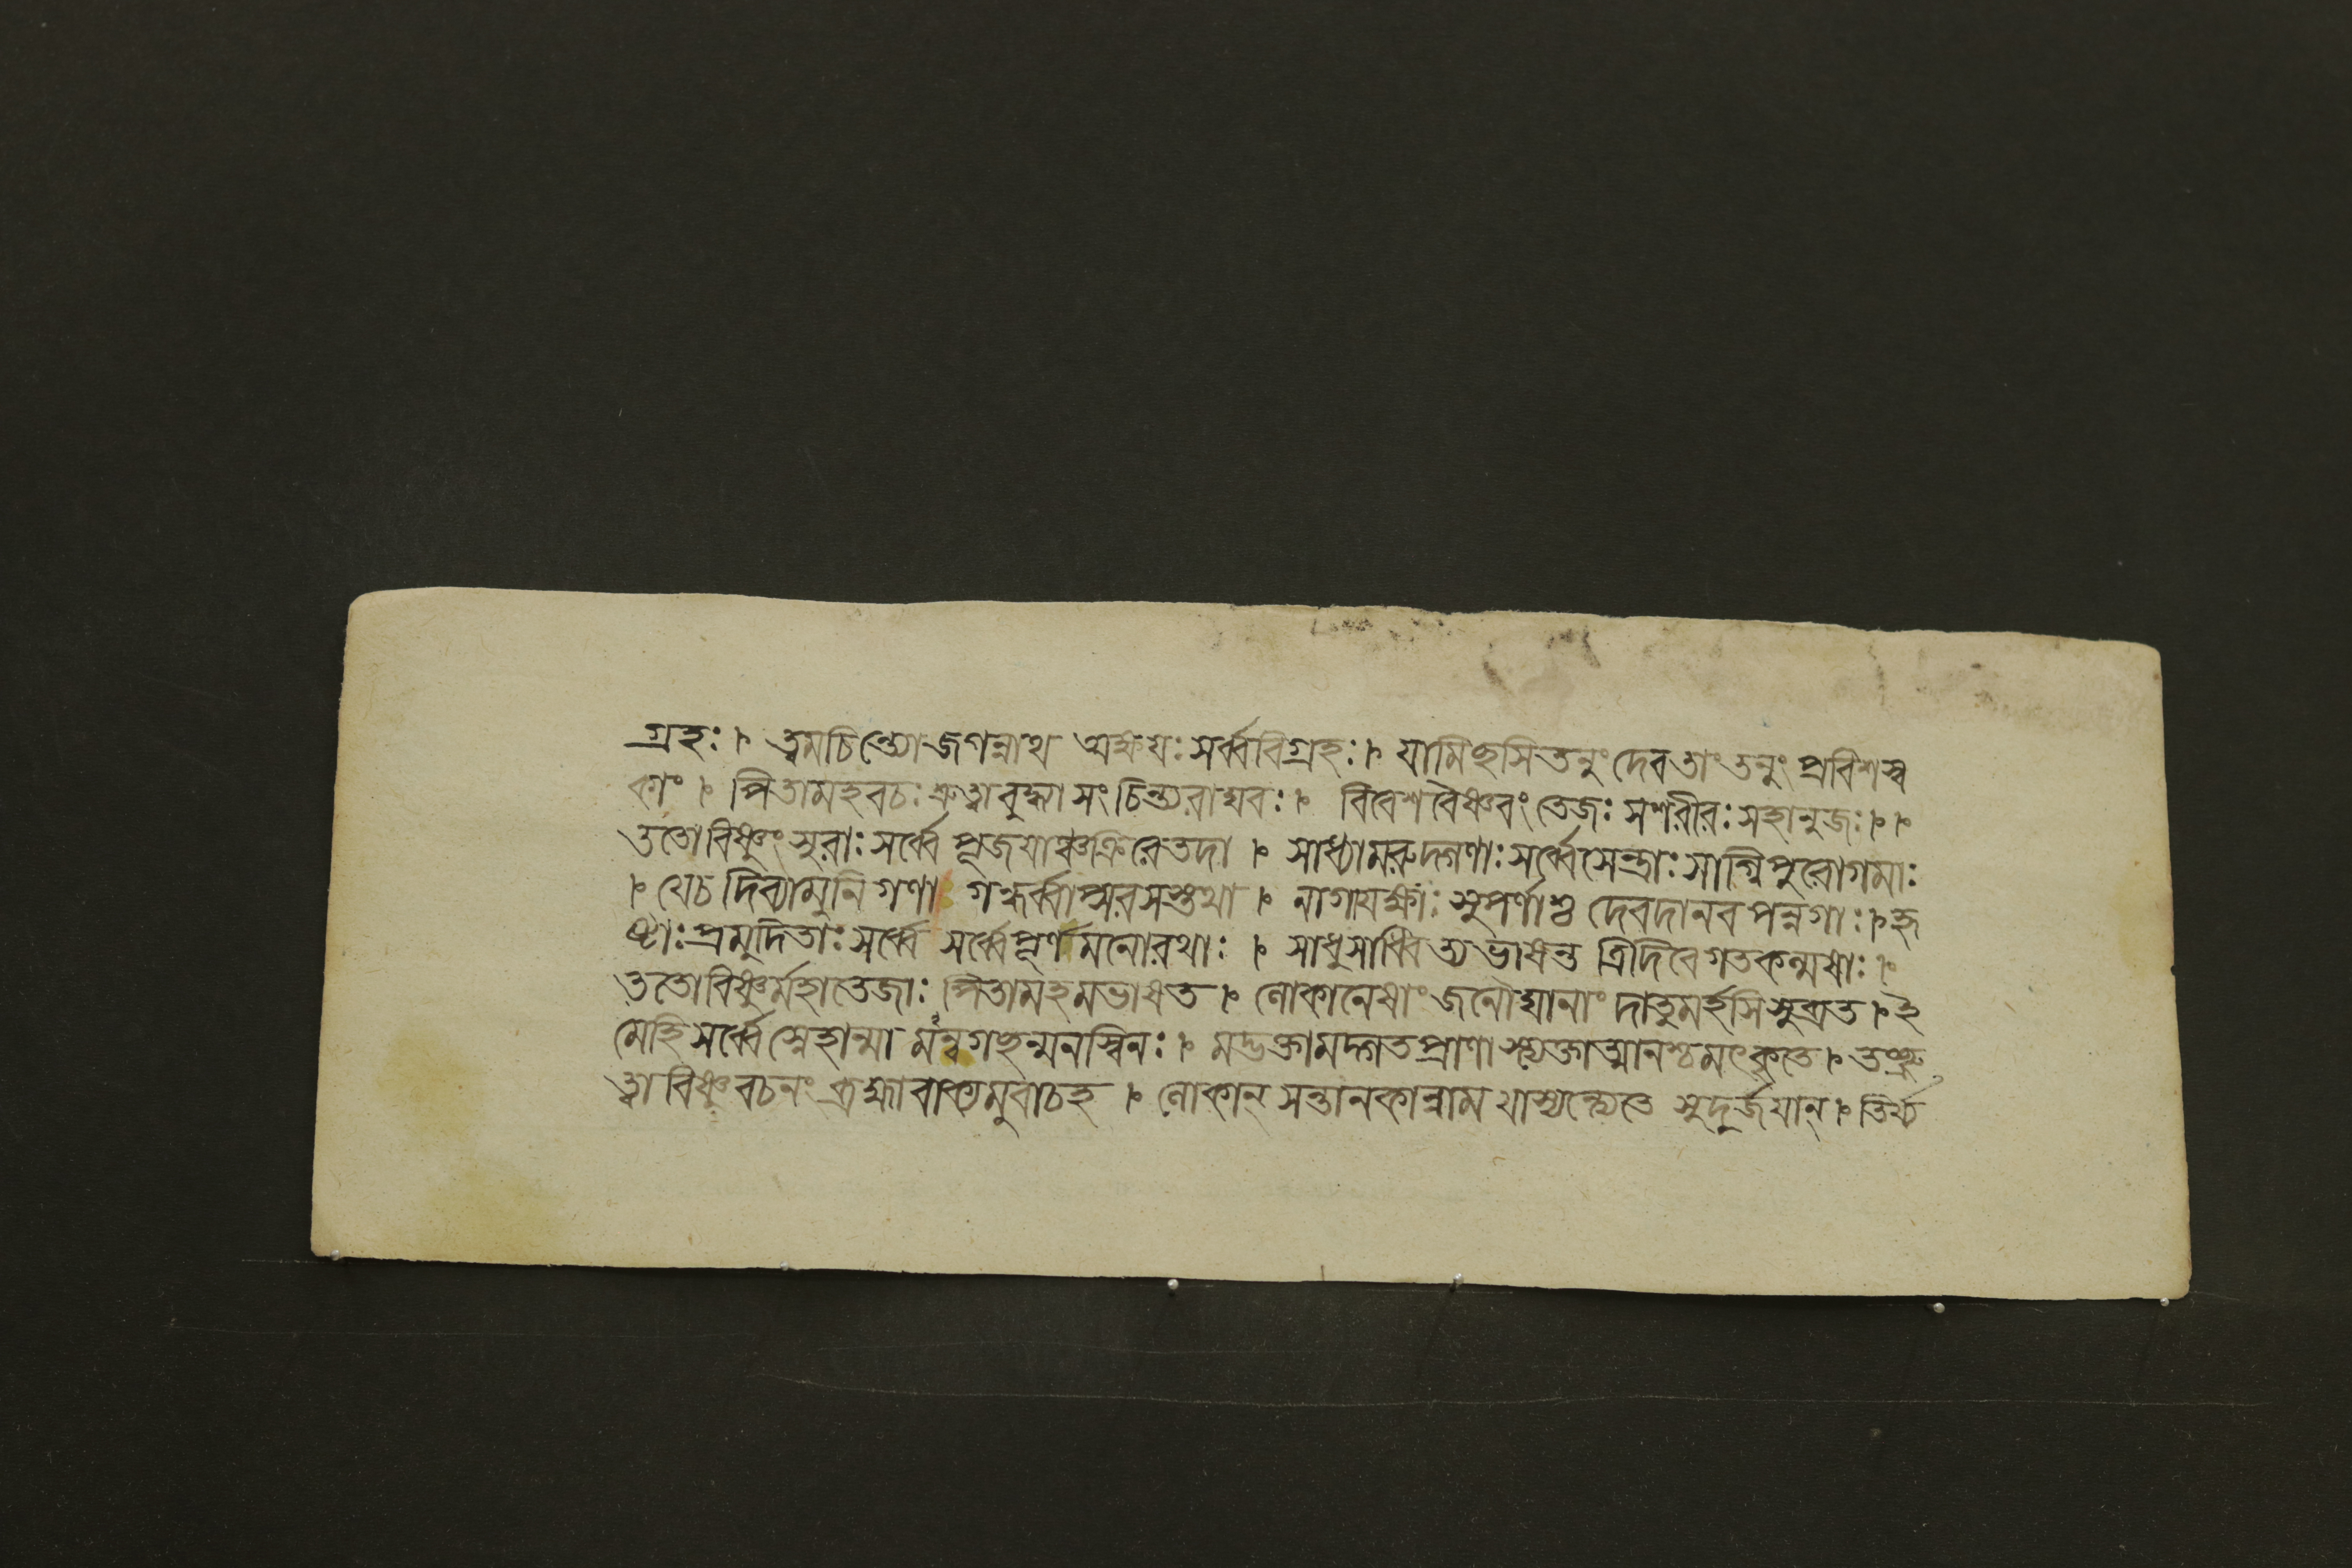 গ্রহঃ। ত্বমচিন্ত্যোজগন্নাথ অক্ষয়ঃসর্ব্ববিগ্রহঃ। যামিছসিতনুংদেবতাংতনুং প্রবিশস্ব
কাং। পিতামহবচঃশ্রুত্বাবুদ্ধ্যাসংচিন্ত্যরাঘবঃ। বিবেশবৈষ্ণবংতেজঃসশরীরঃসহানুজঃ।।
ততোবিষ্ণুংসুরাঃসর্ব্বেপূজয়াঞ্চক্রিরেতদা। সাধ্যামরুদ্গণাঃসর্ব্বেসেন্দ্রাঃসাগ্নিপুরোগমাঃ
। যেচদিব্যামুনিগণা গন্ধর্ব্বাপ্সরসস্তথা। নাগাযক্ষাঃসুপর্ণাশ্চ দেবদানবপন্নগাঃ। হৃ
ষ্টাঃপ্রমুদিতাঃসর্ব্বে সর্ব্বেপূর্ণমনোরথাঃ। সাধুসাধ্বিত্যভাষন্ত ত্রিদিবেগতকল্মষাঃ।
ততোবিষ্ণুর্মহাতেজাঃ পিতামহমভাষত। লোকানেষাংজনৌঘানাং দাতুমর্হসিসুব্রত। ই
মেহিসর্ব্বেস্নেহান্মা মন্বগছন্মনস্বিনঃ। মদ্ভক্তামদ্গতপ্রাণা স্ত্যক্তাত্মানশ্চমৎকৃতে। তচ্ছ্রু
ত্বাবিষ্ণুবচনং ব্রহ্মাবাক্যমুবাচহ। লোকান্ সন্তানকান্নাম যাস্যন্ত্যেতে সুদুর্জয়ান্। তির্য্য